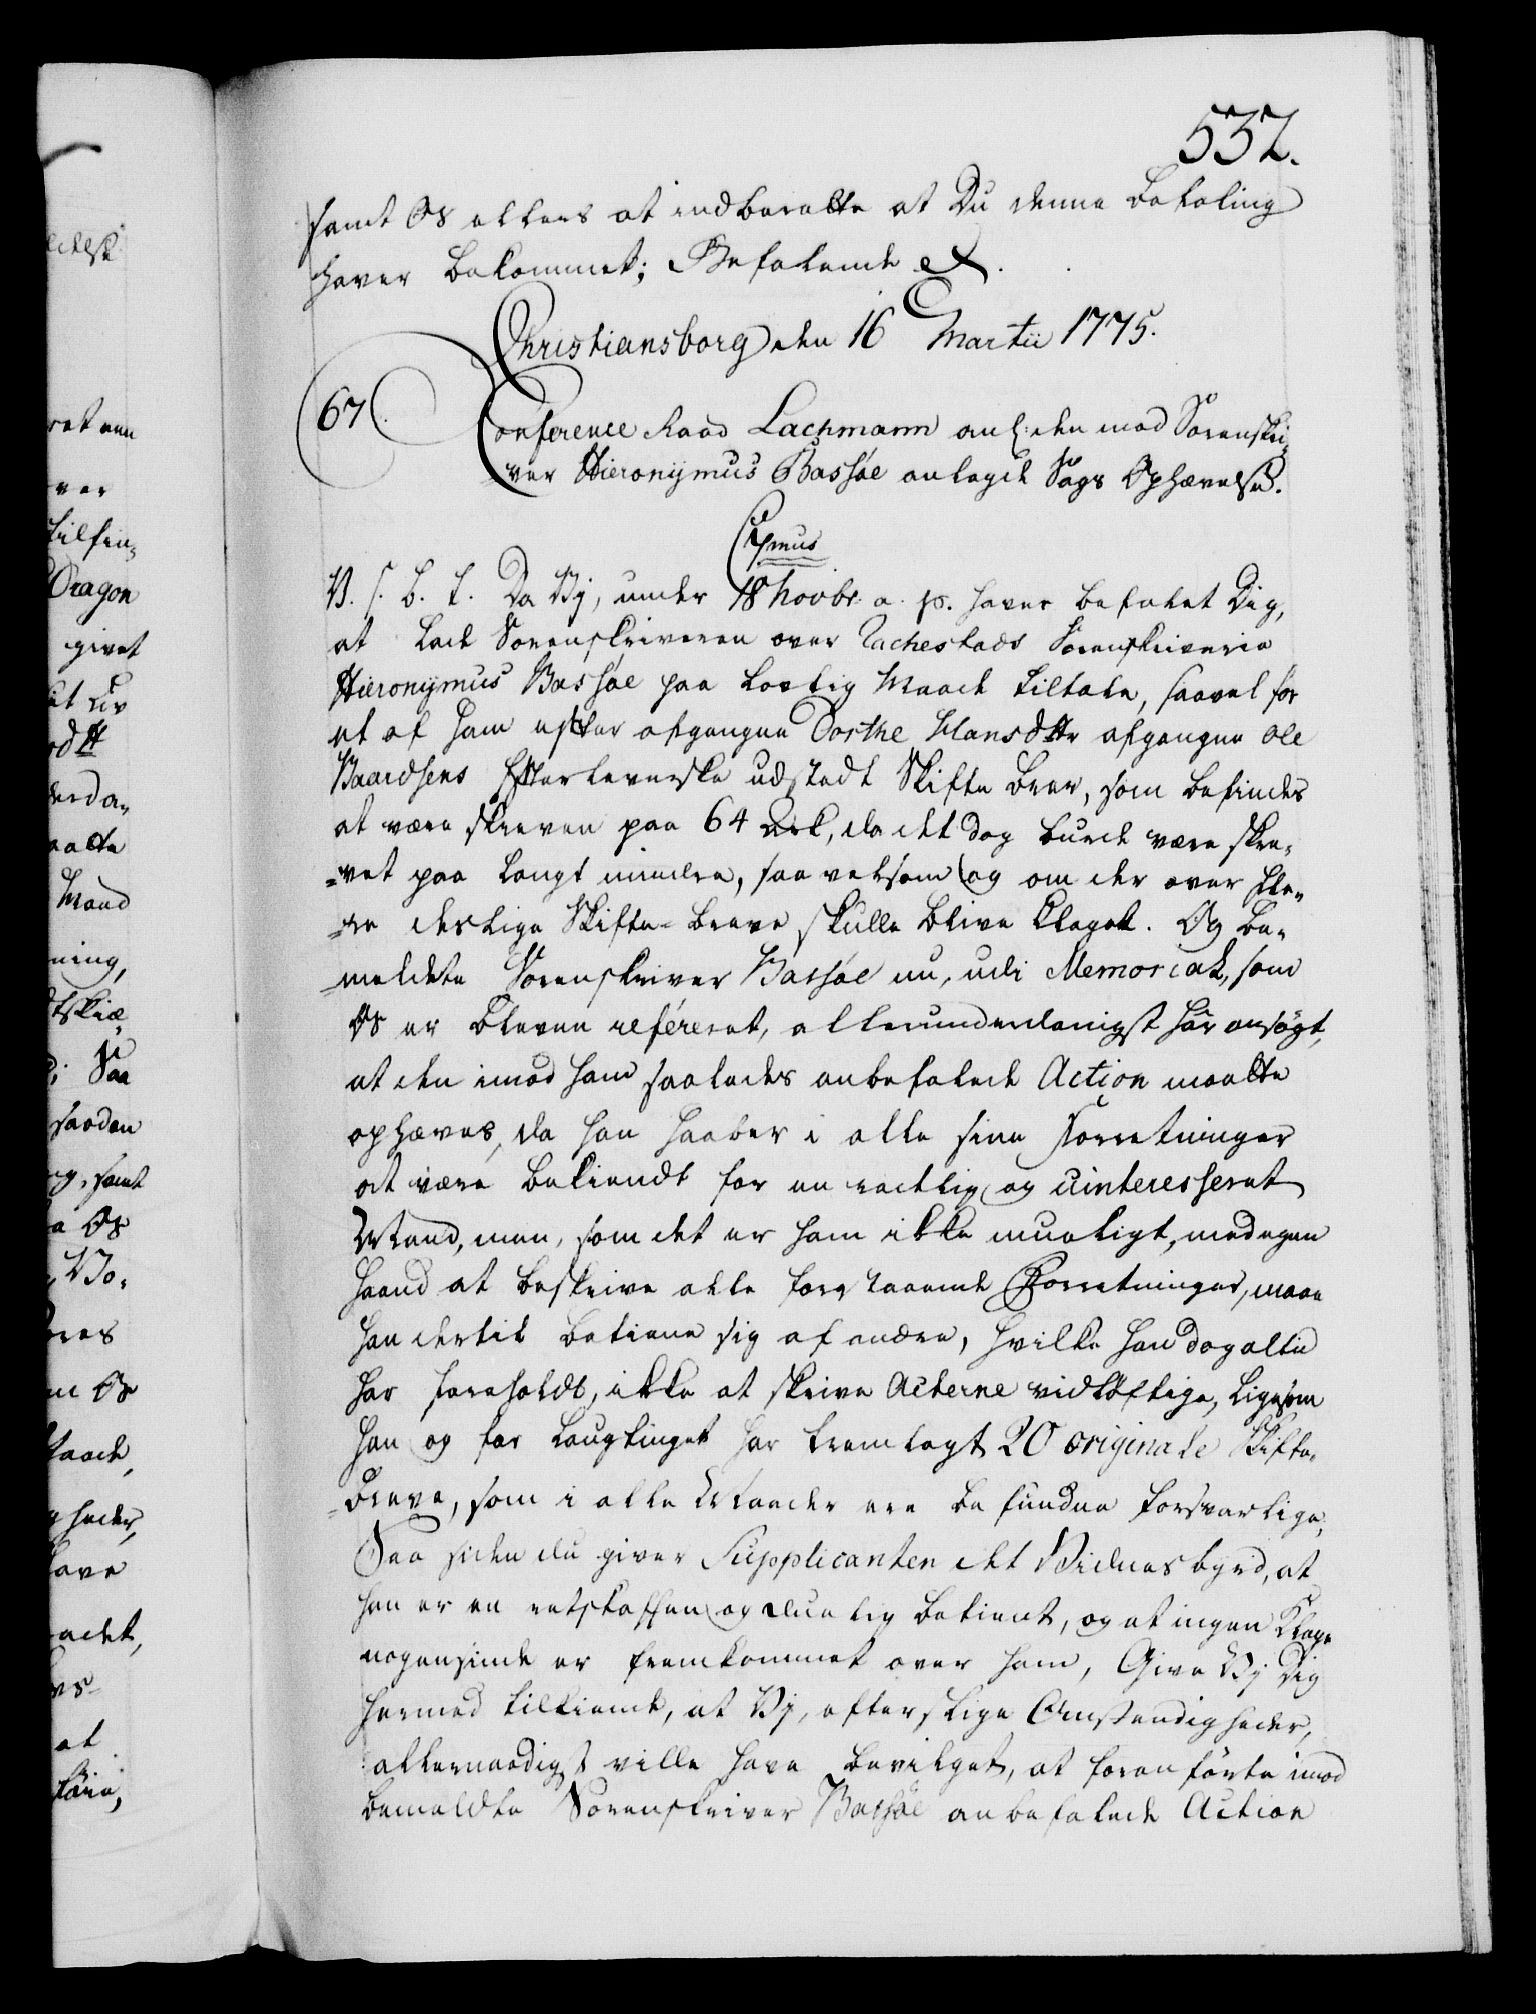 532.
samt Os ellers at indberette at Du denne Befaling
haver bekommet; Befalende etc.
Christiansborg den 16 Martii 1775.
67. Conference Raad Lachmann anl: den mod Sorenskri-
ver Hieronymus Bassøe anlagde Sags Ophævelse.
C 7mus
V. S. G. T. Da Vi, under 18 Novbr. a. p. haver befalet Dig,
at lade Sorenskriveren over Rachestads Sorenskriverie
Hieronymus Bassøe paa lovlig Maade tiltale, saavel for
et af ham efter afgangne Dorthe Hansdttr afgangne Ole
Baardsens Efterleverske udstædt Skifte Brev, som befindes
at være skreven paa 64 Ark, da det dog burde være skre-
=vet paa langt mindre, saavelsom og om der over fle-
=re deslige Skifte-Breve skulle blive klaget. Og be-
=meldte Sorenskriver Bassøe nu, udi Memorial, som
Os er bleven refereret, allerunderdanigst har ansøgt,
at den imod ham saaledes anbefalede Action maatte
ophæves, da han haaber i alle sine Forretninger
at være bekiendt for en redelig og uinteresseret
Mand, men, som det er ham ikke mueligt, med egen
Haand at beskrive alle forefaldende Forretninger, maae
han dertil betiene sig af andre, hvilke han dog altid
har foreholdt, ikke at skrive Acterne vidtløftige, ligesom
han og for Laugtinget har fremlagt 20 originale Skifte-
=Breve, som i alle Maader ere befundne forsvarlige,
Saa siden du giver Supplicanten det Vidnesbyrd, at
han er en retskaffen og duelig Betient, og at ingen Klage
nogensinde er fremkommet over ham, Give Vi Dig
hermed tilkiende, at Vi, efter slige Omstændigheder,
allernaadigst ville have bevilget, at foranførte imod
bemeldte Sorenskriver Bassøe anbefalede Action